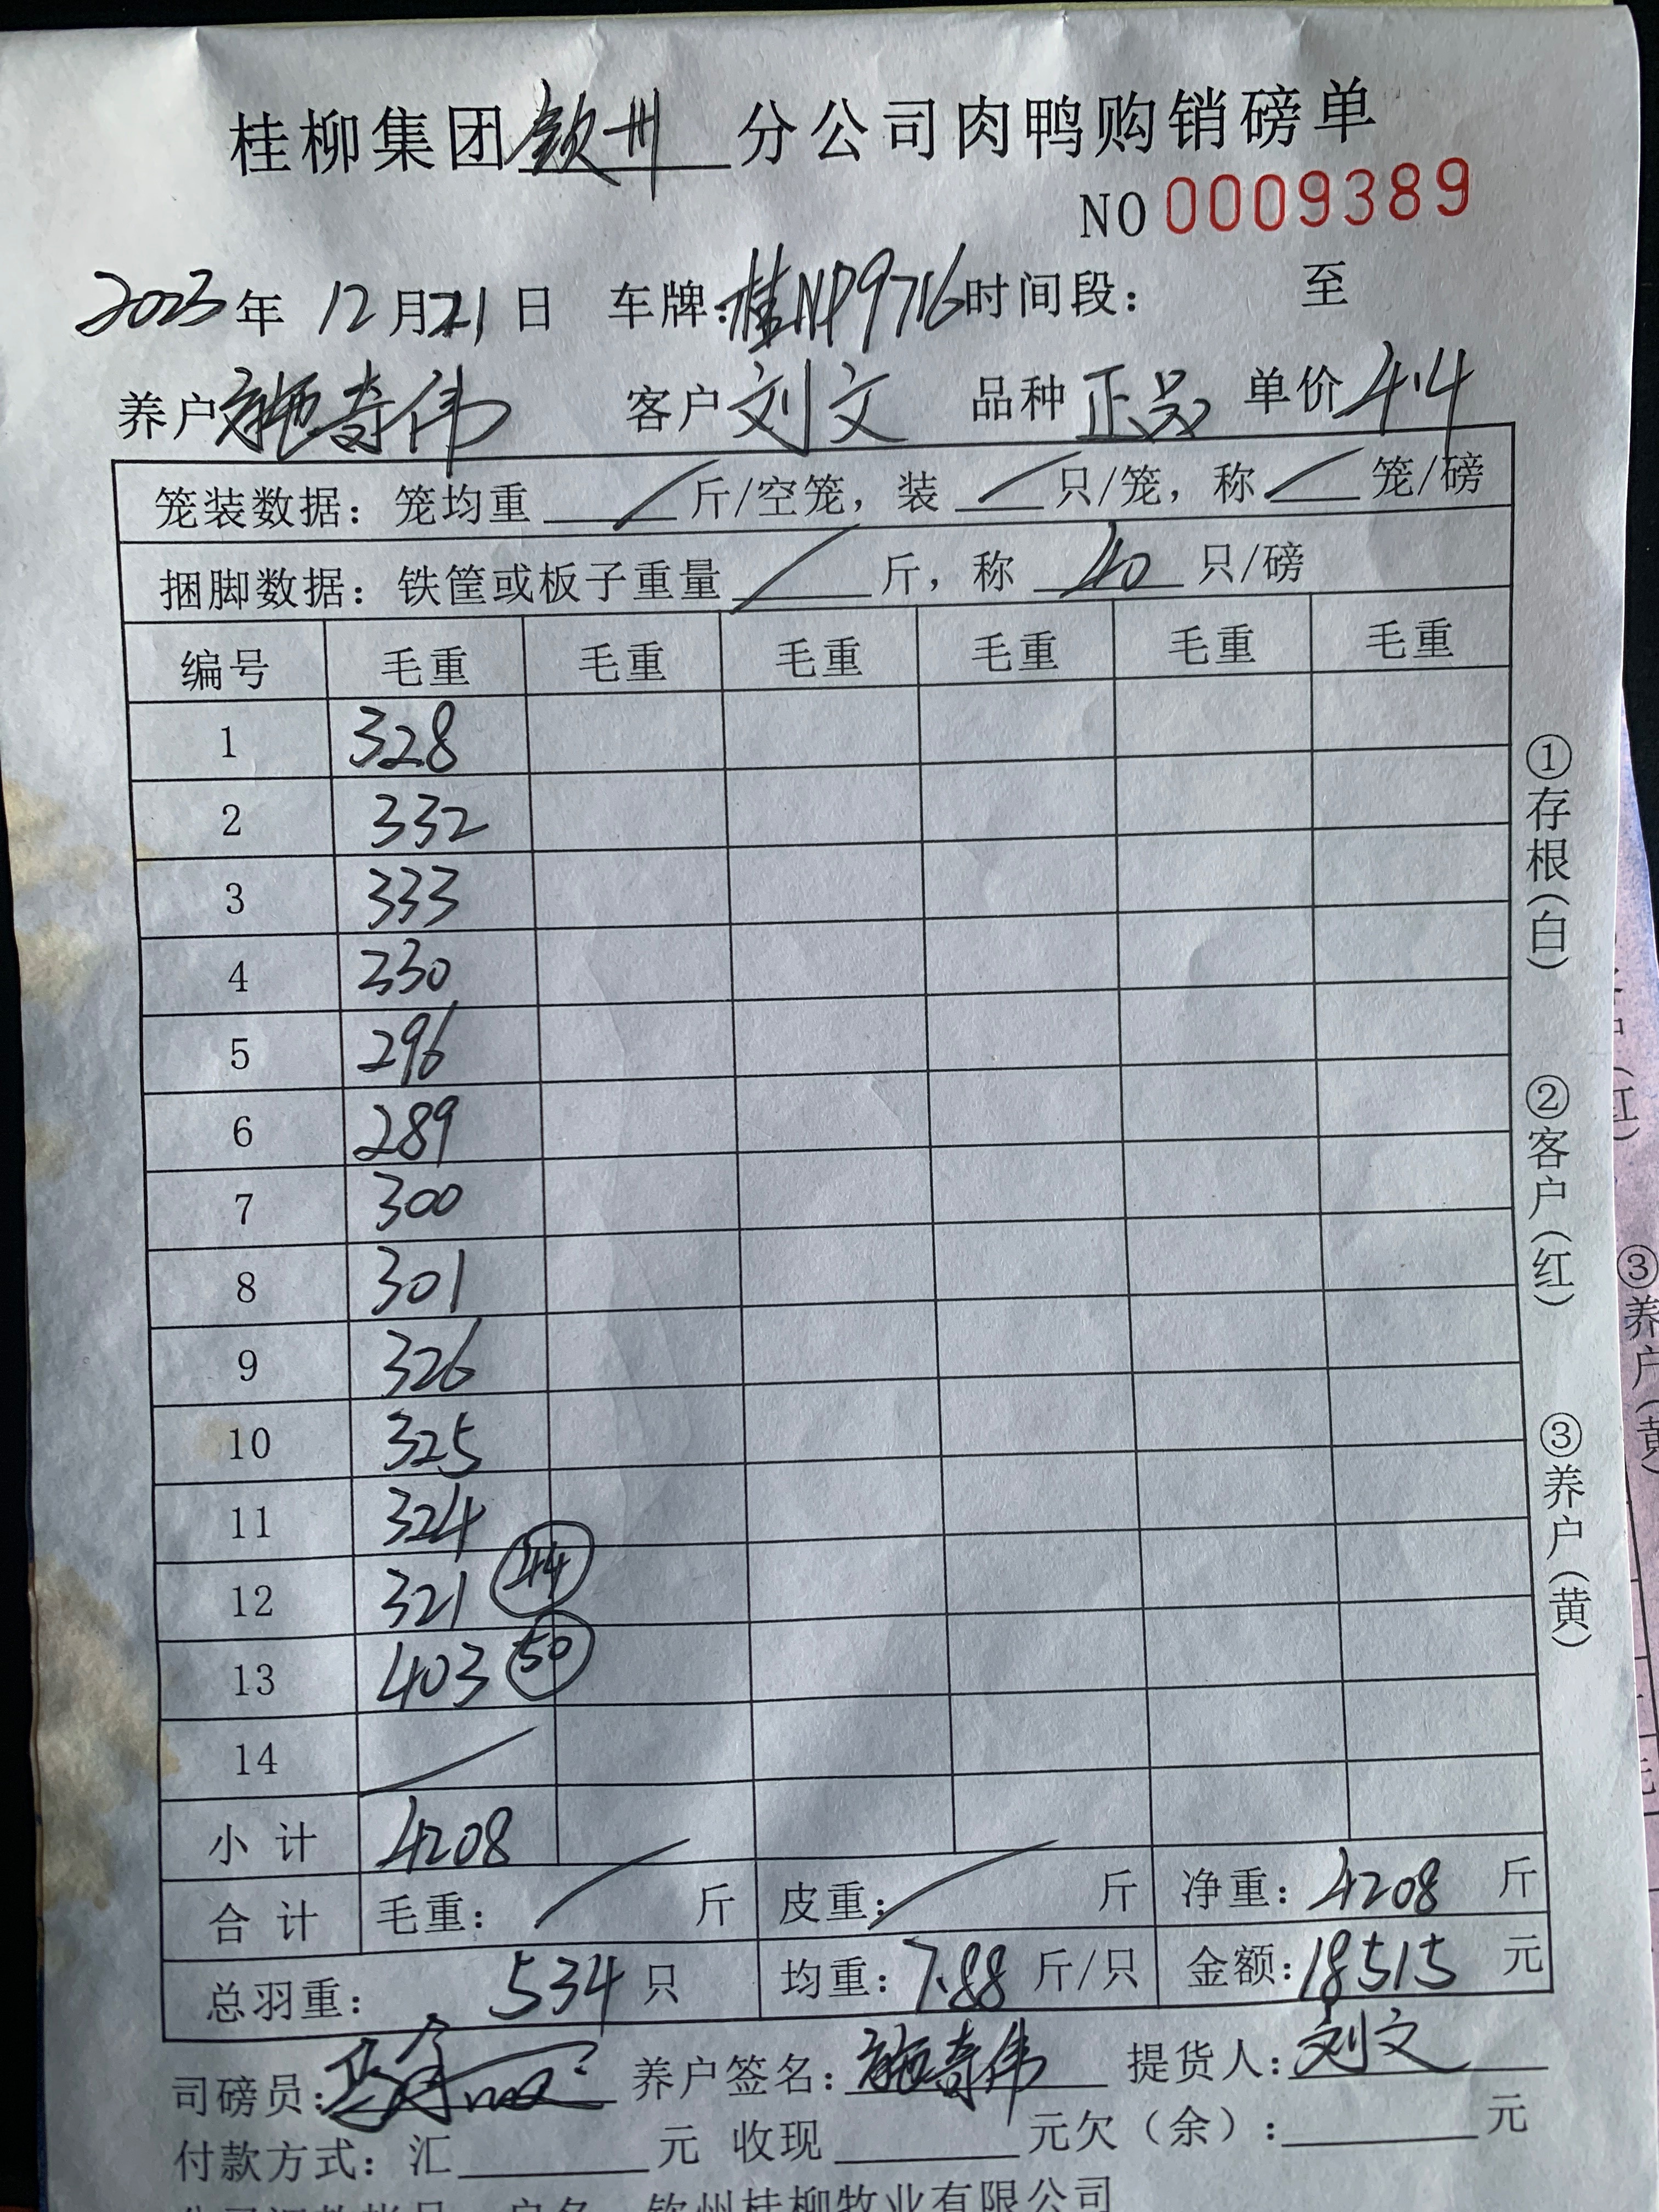 桂柳集团钦州分公司肉鸭购销磅单
NO 0009389
2023年 12月21日 车牌:桂NP9716时间段: 至
养户施奇伟 客户刘文 品种正品 单价4.4
笼装数据: 笼均重 / 斤/空笼, 装 / 只/笼, 称 / 笼/磅
捆脚数据: 铁筐或板子重量 / 斤, 称 40 只/磅
编号 毛重 毛重 毛重 毛重 毛重 毛重
1 328
2 332
3 333
4 330
5 296
6 289
7 300
8 301
9 326
10 325
11 324
12 321 44
13 403 50
14 /
小计 4208
合计 毛重: / 斤 皮重: / 斤 净重: 4208 斤
总羽重: 534只 均重: 7.88斤/只 金额: 18515 元
司磅员: 养户签名: 施奇伟 提货人: 刘文
付款方式: 汇 元 收现 元欠(余): 元
户名 钦州桂柳牧业有限公司
①存根(白) ②客户(红) ③养户(黄)
③养户(黄)